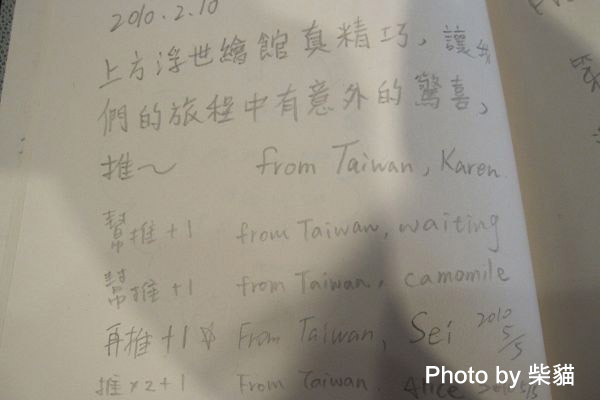 2010.2.10
上方浮世繪館真精巧,讓我
們的旅程中有意外的驚喜、
推～ from Taiwan, Karen.
幫推+1 from Taiwan, waiting
幫推+1 from Taiwan, camomile
再推+1 From Taiwan, Sei 2010 5/5
推x2+1 From Taiwan. Alice
Photo by 柴貓